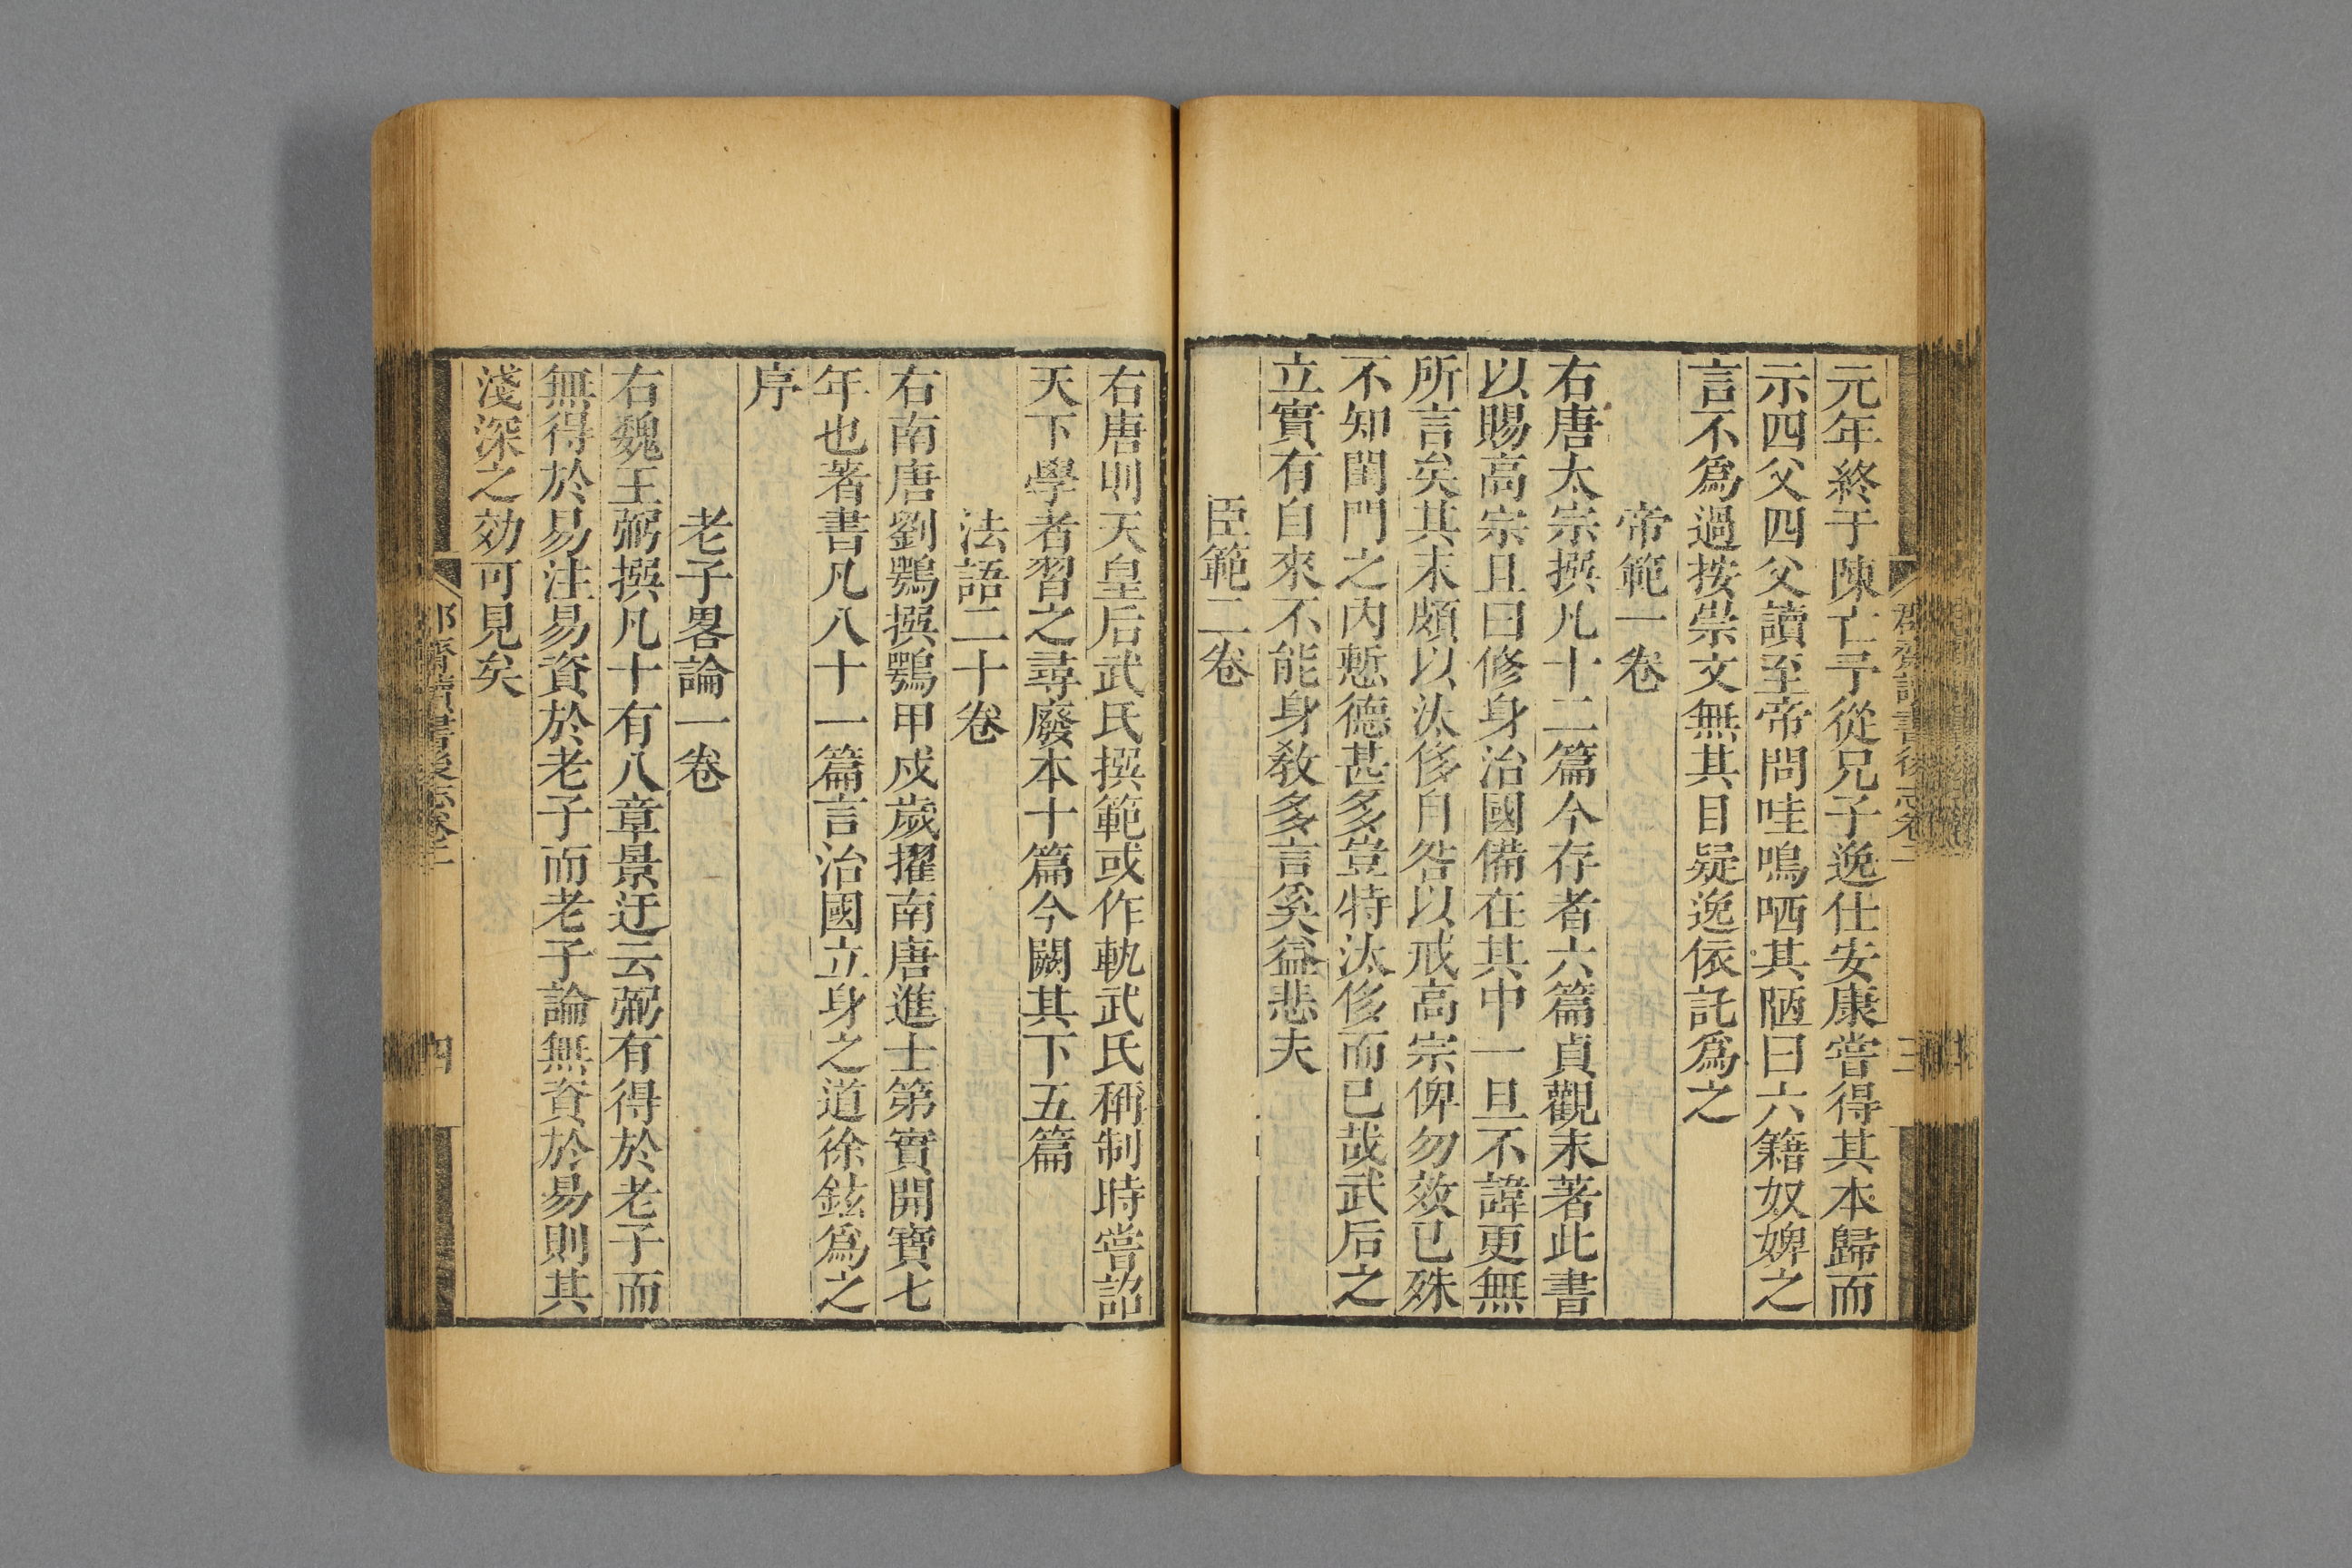 元年終于陳亡子從兄子逸仕安康嘗得其本歸而
示四父四父讀至帝問哇鳴哂其陋曰六籍奴婢之
言不爲過按崇文無其目疑逸依託爲之
帝範一卷
右唐太宗撰凡十二篇今存者六篇貞觀末著此書
以賜高宗且曰修身治國備在其中一旦不諱更無
所言矣其末頗以汰侈自咎以戒高宗俾勿效已殊
不知閨門之內慙德甚多豈特汰侈而已哉武后之
立實有自來不能身敎多言奚益悲夫
臣範二卷
右唐則天皇后武氏撰範或作軌武氏稱制時嘗詔
天下學者習之尋廢本十篇今闕其下五篇
法語二十卷
右南唐劉鶚撰鶚甲戌歲擢南唐進士第實開寶七
年也著書凡八十一篇言治國立身之道徐鉉爲之
序
老子畧論一卷
右魏王弼撰凡十有八章景迂云弼有得於老子而
無得於易注易資於老子而老子論無資於易則其
淺深之効可見矣
郡齋讀書後志卷二
四